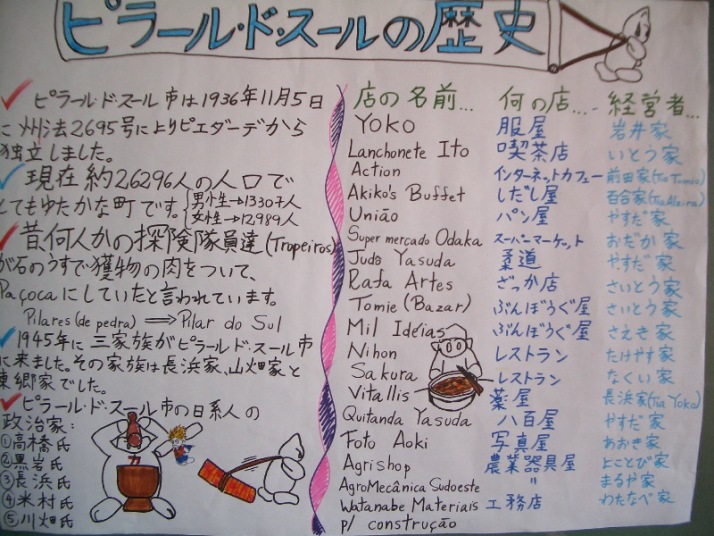 ピラール・ド・スールの歴史
✓ ピラール・ド・スール市は1936年11月5日
に州法2695号によりピエダーデから
独立しました。
✓現在約26296人の人口で
とてもゆたかな町です。
男性→13307人
女性→12989人
✓昔何人かの探険隊員達(Tropeiros)
が石のうすで獲物の肉をついて、
Paçocaにしていたと言われています。
Pilares (de pedra) ⟹ Pilar do Sul
✓1945年に三家族がピラール・ド・スール市
に来ました。その家族は長浜家、山畑家と
東郷家でした。
✓ピラール・ド・スール市の日系人の
政治家:
①高橋氏
②黒岩氏
③長浜氏
④米村氏
⑤川畑氏
カ
店の名前... 何の店... 経営者...
YOKO 服屋 岩井家
Lanchonete Ito 喫茶店 いとう家
Action インターネットカフェー 前田家(Tia Tomio)
Akiko's Buffet しだし屋 百合家
União パン屋 やすだ家
Super mercado Odaka スーパーマーケット おだか家
Judô Yasuda 柔道 やすだ家
Rafa Artes ざっか店 さいとう家
Tomie (Bazar) ぶんぼうぐ屋 さいとう家
Mil Idéias ぶんぼうぐ屋 さえき家
Nihon レストラン たけやす家
Sakura レストラン なくい家
Vitallis 薬屋 長浜家(Tia Yoko)
Quitanda Yasuda 八百屋 やすだ家
Foto Aoki 写真屋 あおき家
Agrishop 農業器具屋 よことび家
AgroMecânica Sudoeste 〃 まるや家
Watanabe Materiais 工務店 わたなべ家
p/ construção